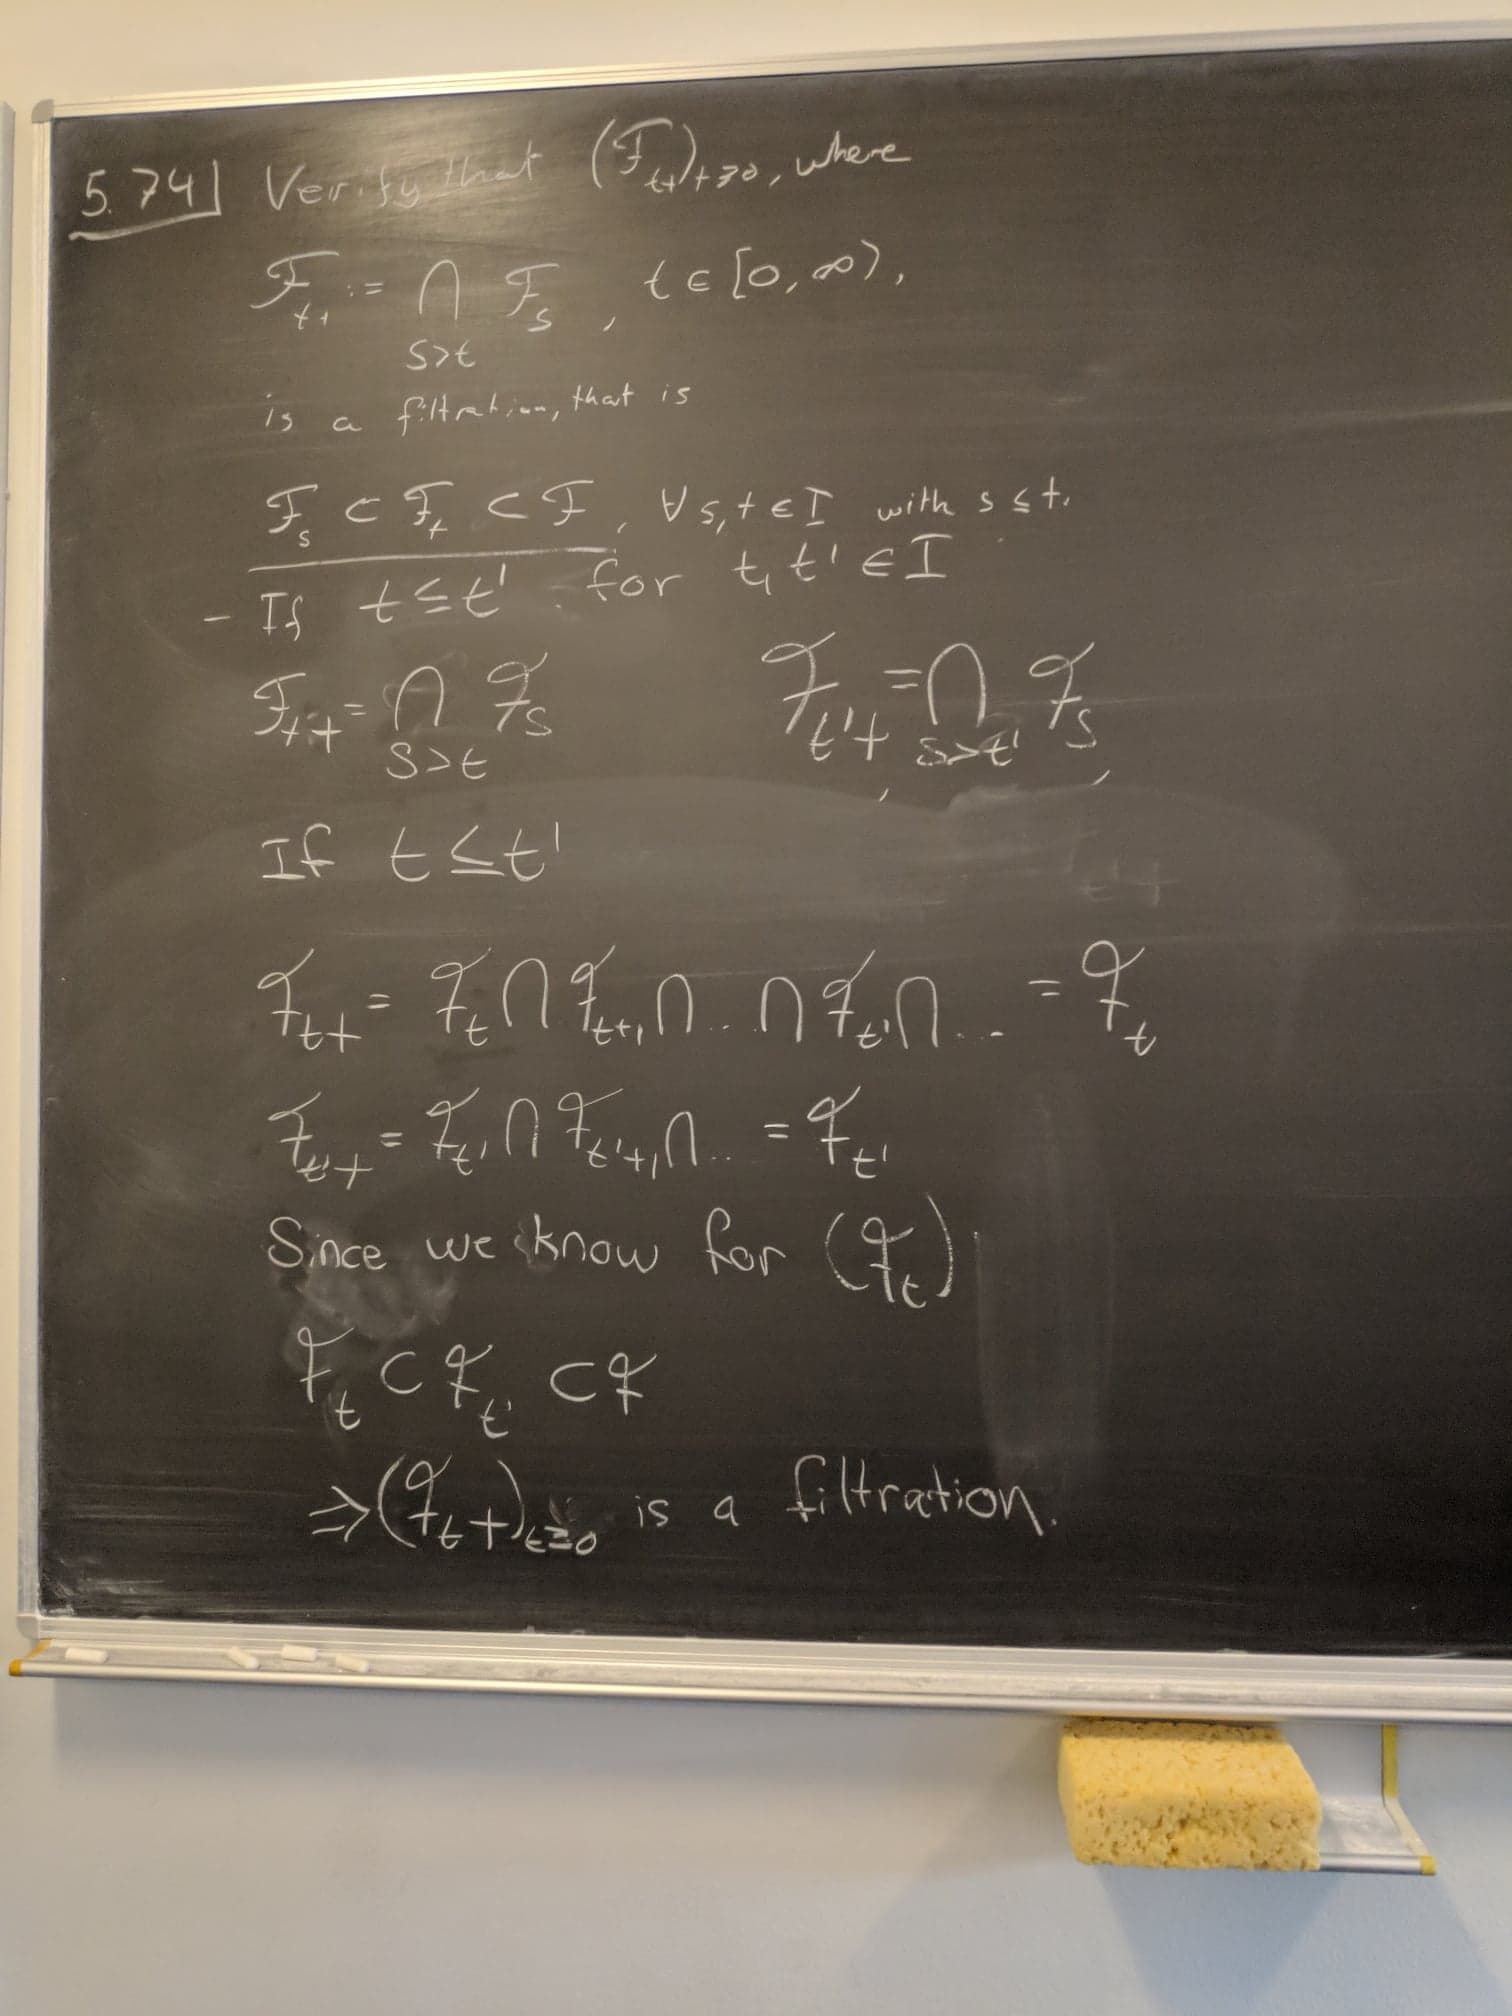 5.74 Verify that (ℱ_{t+})_{t≥0}, where
ℱ_{t+} := ∩_{s>t} ℱ_s, t ∈ [0,∞),
is a filtration, that is
ℱ_s ⊂ ℱ_t ⊂ ℱ, ∀ s,t ∈ I with s ≤ t.
- If t ≤ t' for t, t' ∈ I
ℱ_{t+} = ∩_{s>t} ℱ_s    ℱ_{t'+} = ∩_{s>t'} ℱ_s
If t ≤ t'
ℱ_{t+} = ℱ_t ∩ ℱ_{t+1} ∩ .. ∩ ℱ_{t'} ∩ ... = ℱ_t
ℱ_{t'+} = ℱ_{t'} ∩ ℱ_{t'+1} ∩ .. = ℱ_{t'}
Since we know for (ℱ_t)
ℱ_t ⊂ ℱ_{t'} ⊂ ℱ
⇒ (ℱ_{t+})_{t≥0} is a filtration.